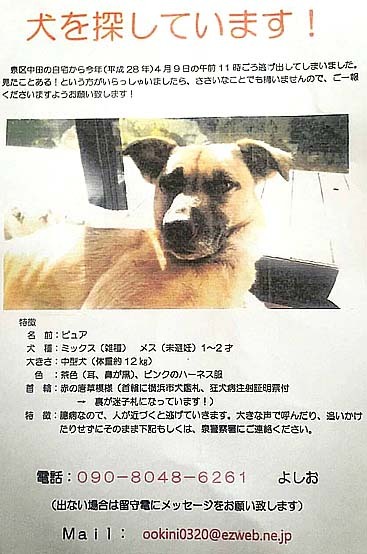 犬を探しています！
泉区中田の自宅から今年(平成28年)4月9日の午前11時ごろ逃げ出してしまいました。
見たことある！という方がいらっしゃいましたら、ささいなことでも構いませんので、ご一報
くださいますようお願い致します！
特徴
名 前：ピュア
犬 種：ミックス（雑種） メス（未避妊）1～2才
大きさ：中型犬（体重約12㎏）
色 ：茶色（耳、鼻が黒）、ピンクのハーネス服
首 輪：赤の唐草模様（首輪に横浜市犬鑑札、狂犬病注射証明票付
→ 裏が迷子札になっています！）
特 徴：臆病なので、人が近づくと逃げていきます。大きな声で呼んだり、追いかけ
たりせずにそのまま下記もしくは、泉警察署にご連絡ください。
電話：090-8048-6261 よしお
（出ない場合は留守電にメッセージをお願い致します）
Mail： ookini0320@ezweb.ne.jp